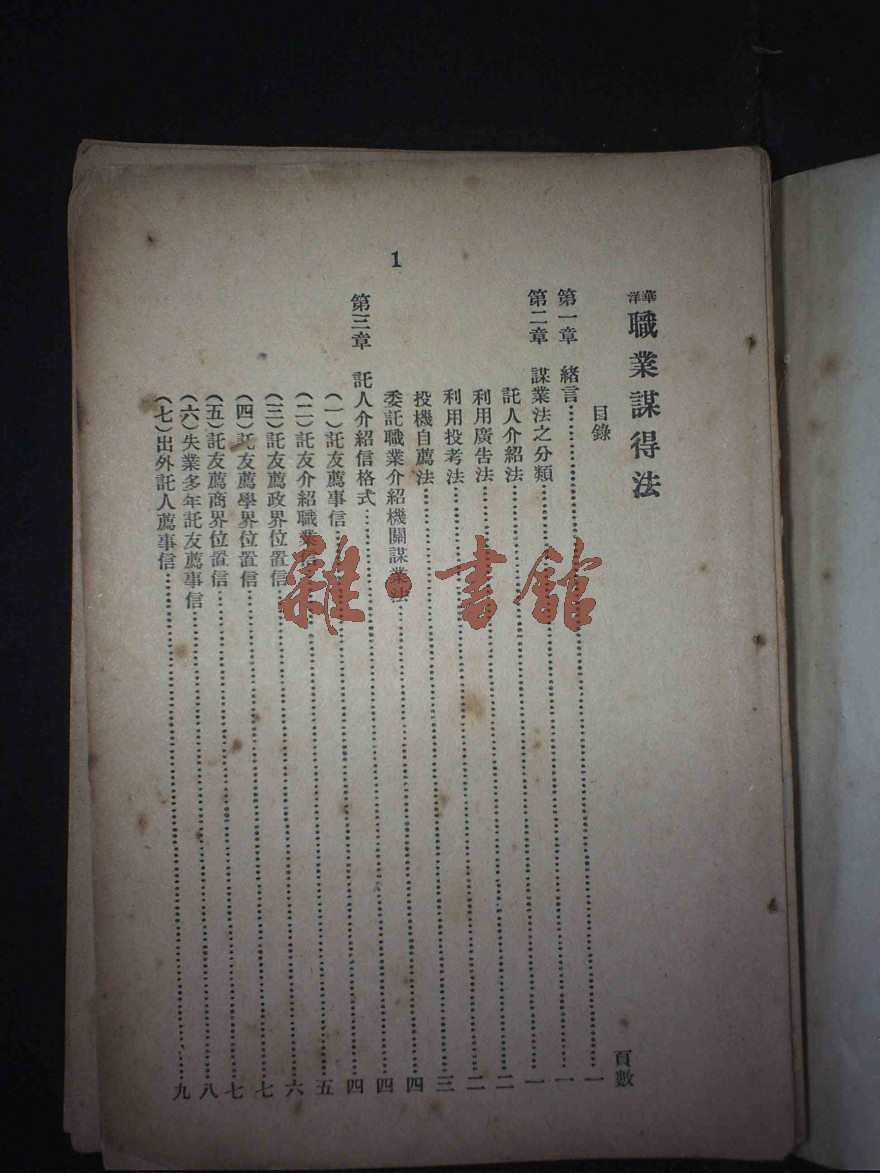 1
華洋 職業謀得法
目錄 頁數
第一章 緒言……一
第二章 謀業法之分類……一
託人介紹法……一
利用廣告法……二
利用投考法……二
投機自薦法……三
委託職業介紹機關謀業法……四
第三章 託人介紹信格式……四
(一)託友薦事信……四
(二)託友介紹職業信……五
(三)託友薦政界位置信……六
(四)託友薦學界位置信……七
(五)託友薦商界位置信……七
(六)失業多年託友薦事信……八
(七)出外託人薦事信……九
雜·書館